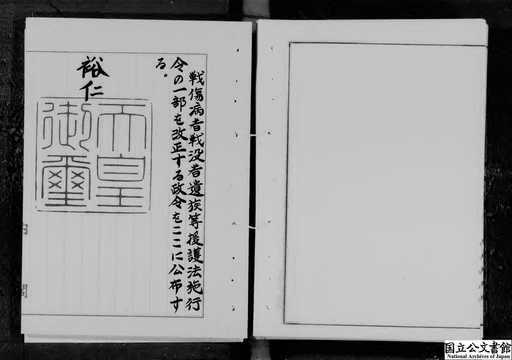 戦傷病者戦没者遺族等援護法施行
令の一部を改正する政令をここに公布す
る。
裕仁
天皇
御璽
内閣
国立公文書館
National Archives of Japan